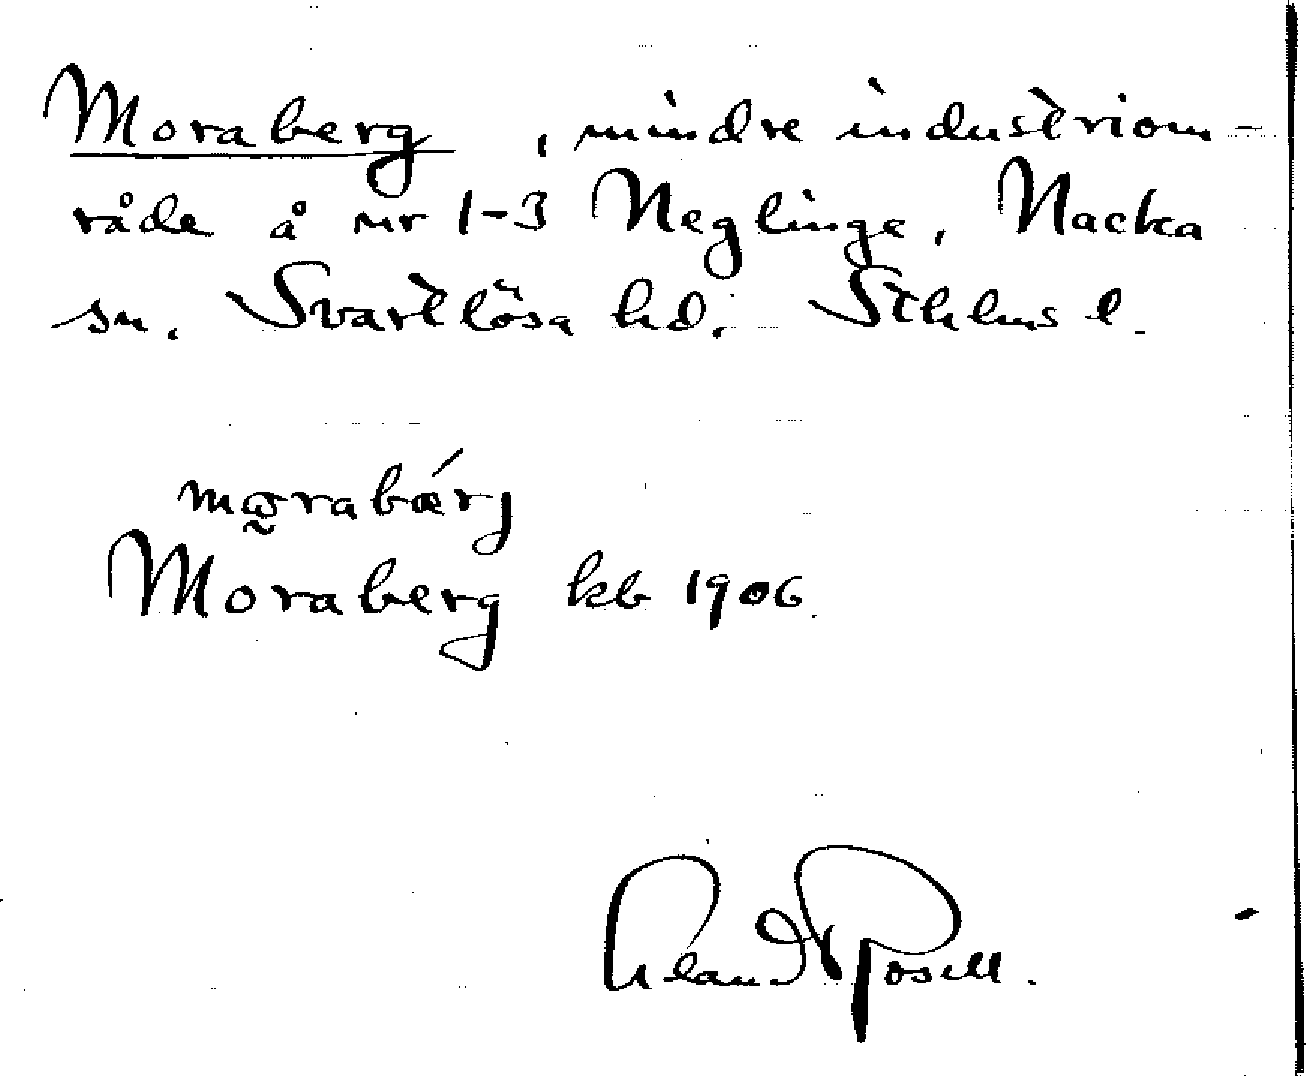 Moraberg, mindre industriom-
råde å nr 1-3 Neglinge, Nacka
sn. Svartlösa hd. Sthlms l.
Moraberg kb 1906.
Rosell.